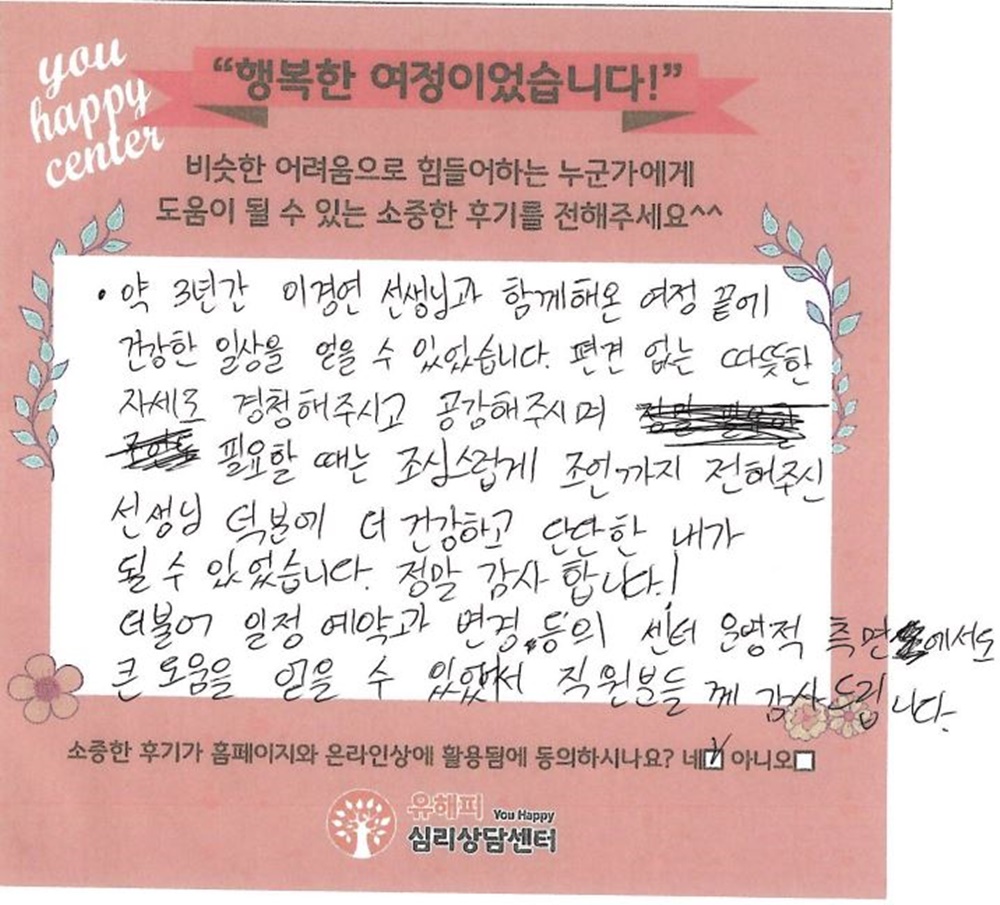 you
happy
center
“행복한 여정이었습니다!”
비슷한 어려움으로 힘들어하는 누군가에게
도움이 될 수 있는 소중한 후기를 전해주세요^^
• 약 3년간 이경연 선생님과 함께해온 여정 끝에
건강한 일상을 얻을 수 있었습니다. 편견 없는 따뜻한
자세로 경청해주시고 공감해주시며
필요할 때는 조심스럽게 조언까지 전해주신
선생님 덕분에 더 건강하고 단단한 내가
될 수 있었습니다. 정말 감사합니다!
더불어 일정 예약과 변경 등의 센터 운영적 측면에서도
큰 도움을 얻을 수 있었어서 직원분들께 감사드립니다.
소중한 후기가 홈페이지와 온라인상에 활용됨에 동의하시나요? 네☑ 아니오☐
유해피 You Happy
심리상담센터